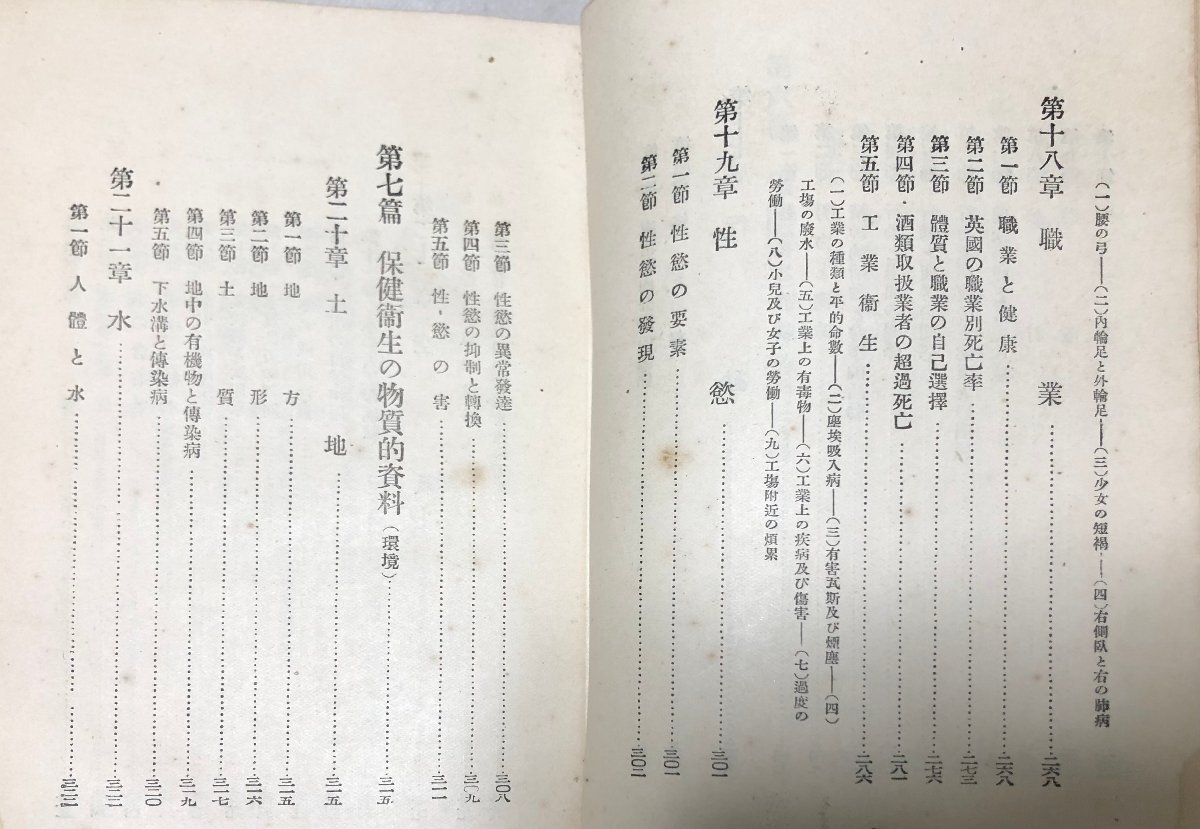 （一）腰の弓——（二）內輪足と外輪足——（三）少女の短褐——（四）右側臥と右の肺病
第十八章　職業……二六八
第一節　職業と健康……二六八
第二節　英國の職業別死亡率……二七三
第三節　體質と職業の自己選擇……二七六
第四節　酒類取扱業者の超過死亡……二八一
第五節　工業衞生……二八六
（一）工業の種類と平的命數——（二）塵埃吸入病——（三）有害瓦斯及び煙塵——（四）
工場の廢水——（五）工業上の有毒物——（六）工業上の疾病及び傷害——（七）過度の
勞働——（八）小兒及び女子の勞働——（九）工場附近の煩累
第十九章　性慾……三〇一
第一節　性慾の要素……三〇一
第二節　性慾の發現……三〇二
第三節　性慾の異常發達……三〇八
第四節　性慾の抑制と轉換……三〇九
第五節　性慾の害……三一一
第七篇　保健衞生の物質的資料（環境）……三一五
第二十章　土地……三一五
第一節　地方……三一五
第二節　地形……三一六
第三節　土質……三一七
第四節　地中の有機物と傳染病……三一九
第五節　下水溝と傳染病……三二〇
第二十一章　水……三二二
第一節　人體と水……三二二